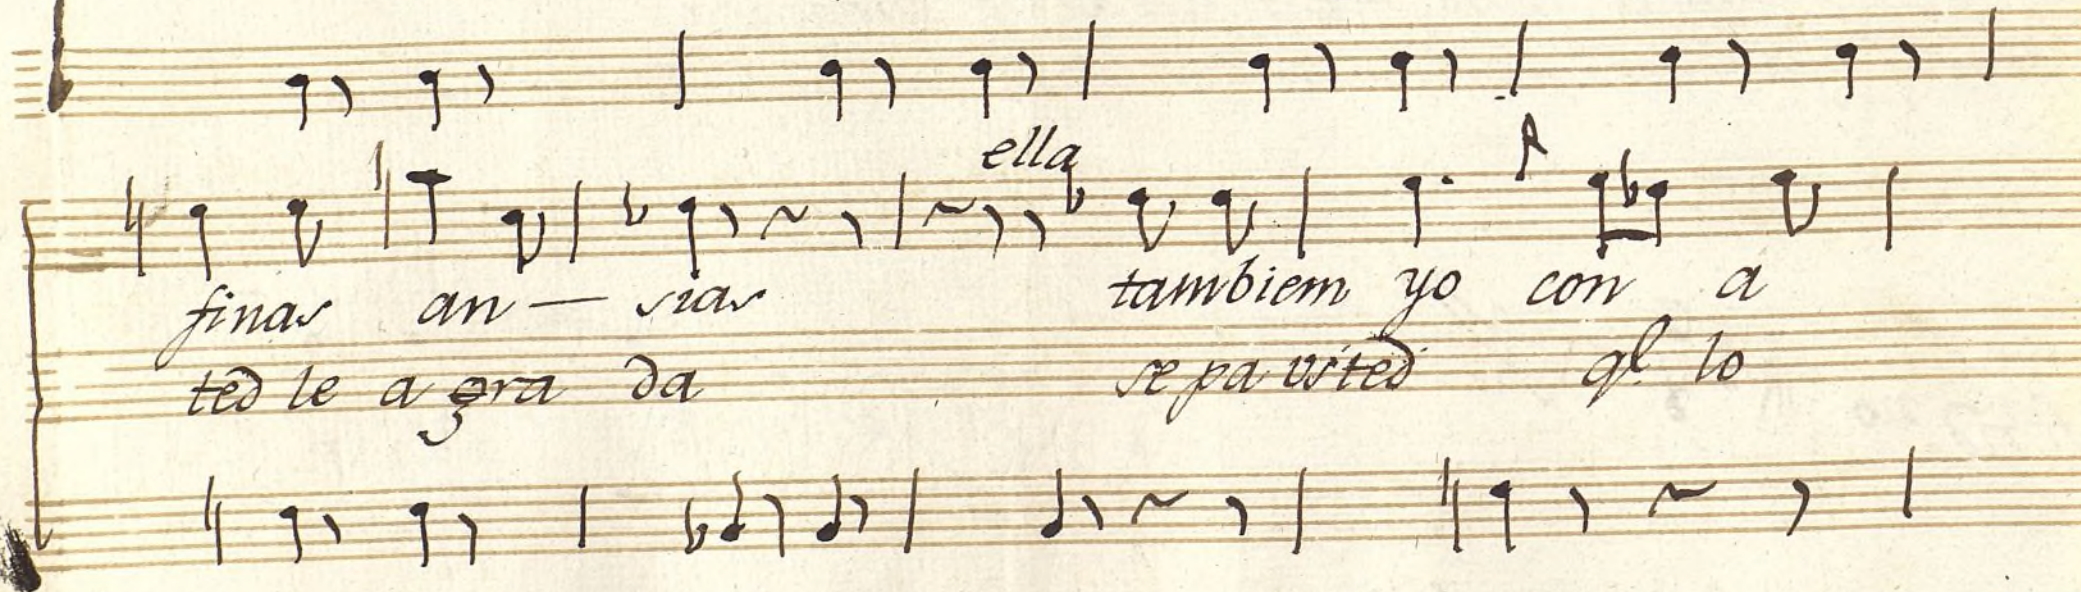 ella
finas an — sias tambiem yo con a
ted le a gra da sepa usted ql lo